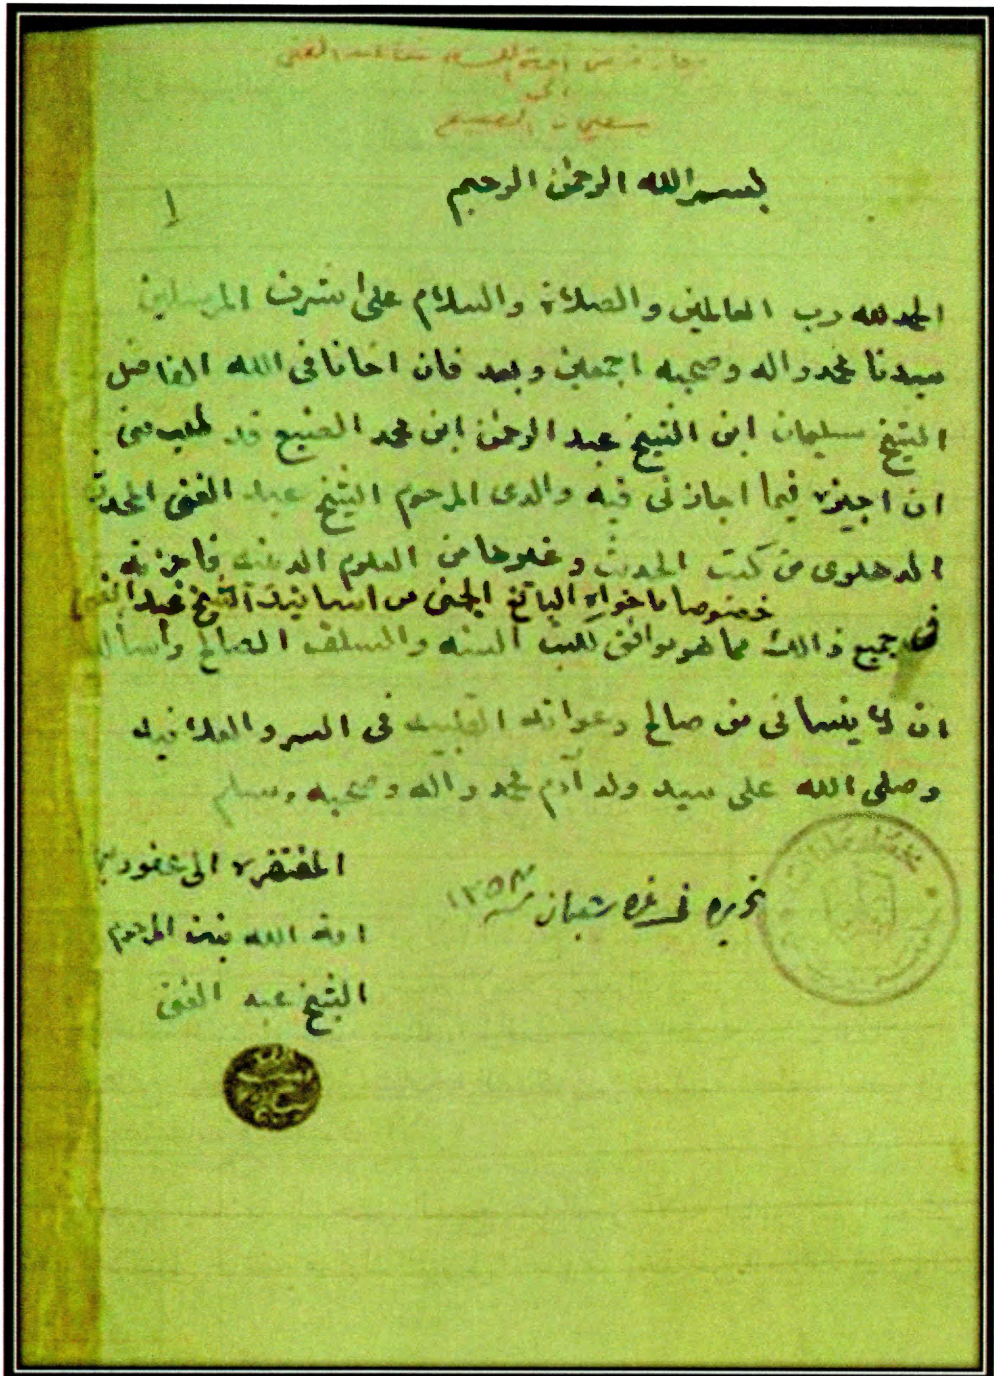 اجازة من امة الله بنت عبد الغنى
الى
سليمان الصنيع
بسم الله الرحمن الرحيم
١
الحمد لله رب العالمين والصلاة والسلام على اشرف المرسلين
سيدنا محمد واله وصحبه اجمعين وبعد فان اخانا فى الله الفاضل
الشيخ سليمان ابن الشيخ عبد الرحمن ابن محمد الصنيع قد طلب منى
ان اجيزه فيما اجازنى فيه والدى المرحوم الشيخ عبد الغنى المحدث
الدهلوى من كتب الحديث وغيرها من العلوم الدينيه فاجزته
خصوصا ما حواه اليانع الجنى من اسانيد الشيخ عبد الغنى
فى جميع ذالك مما هو موافق للسنه والسلف الصالح وأسأله
ان لا ينسانى من صالح دعواته القلبيه فى السر والعلانيه
وصلى الله على سيد ولد آدم محمد واله وصحبه وسلم
المفتقره الى عفو ربها
تحريره فى غرة شعبان سنه ١٣٥٣
امة الله بنت المرحوم
الشيخ عبد الغنى